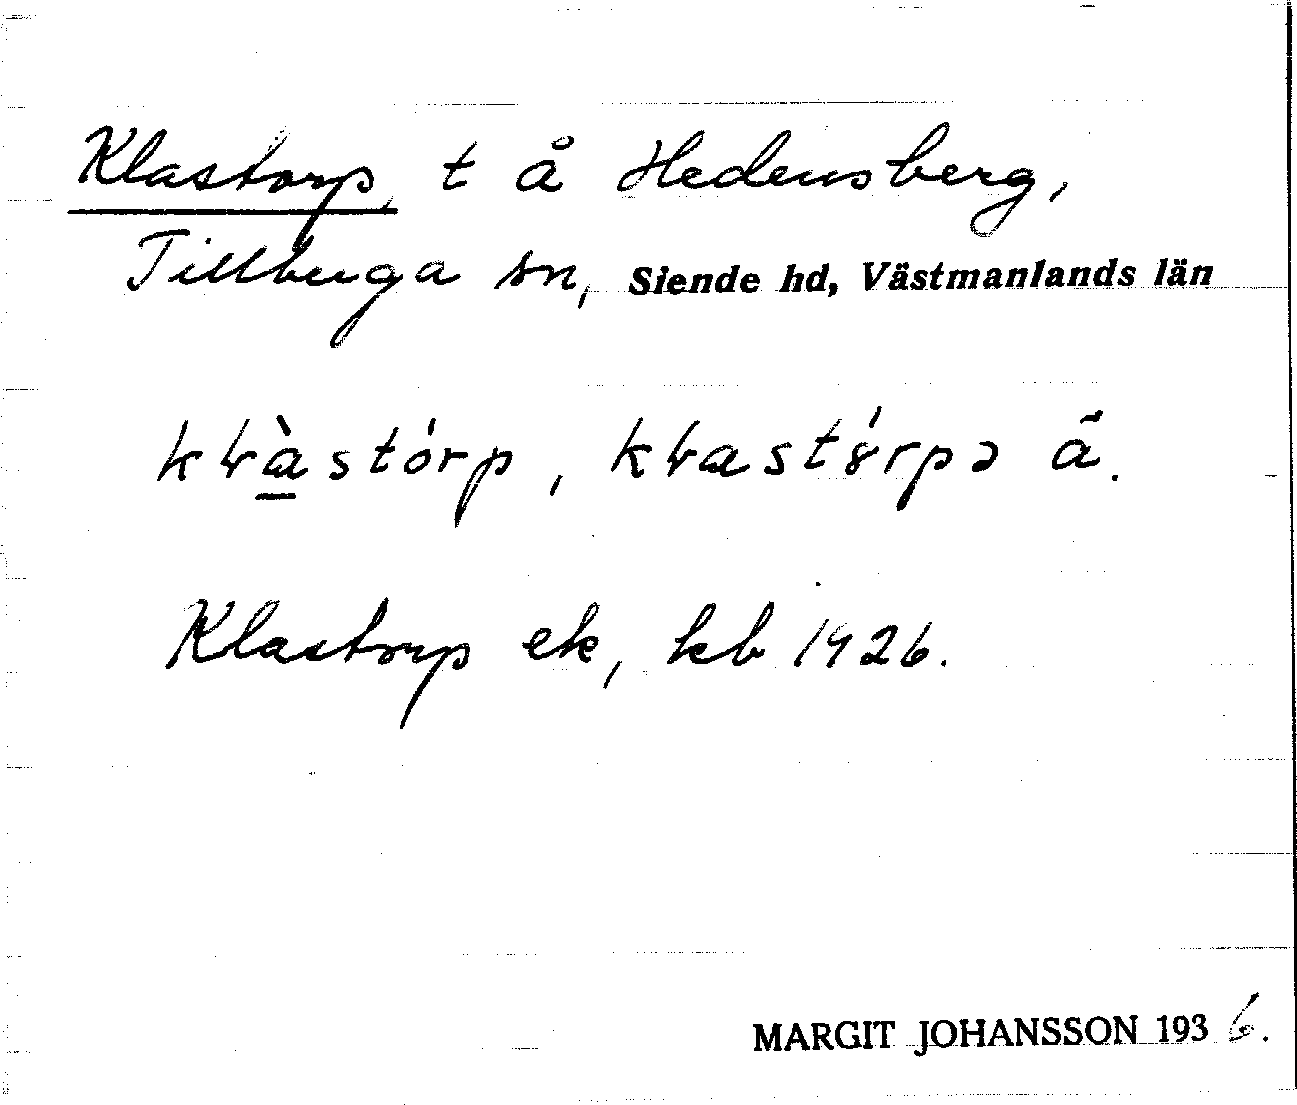 Klastorp, t å Hedensberg,
Tillberga sn, Siende hd, Västmanlands län
Klastorp ek, kb 1926.
MARGIT JOHANSSON 1936.